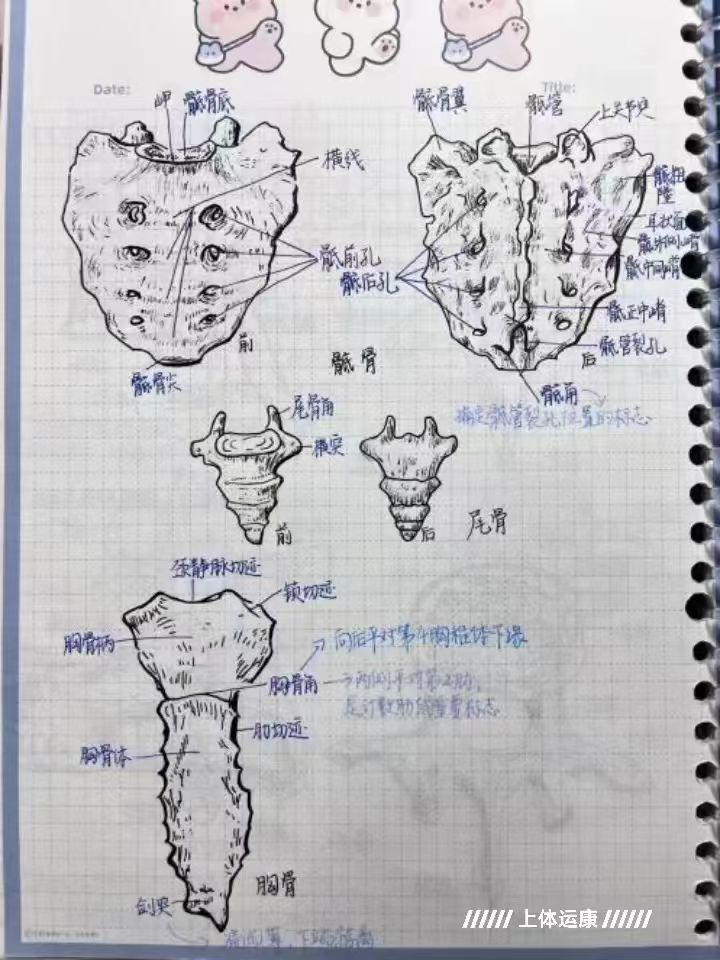 Date:
Title:
岬 骶骨底
横线
骶前孔
前
骶骨尖
骶骨翼
骶管
上关节突
骶粗隆
耳状面
骶外侧嵴
骶中间嵴
骶后孔
骶正中嵴
骶管裂孔
后
骶角
确定骶管裂孔位置的标志
骶骨
尾骨角
横突
前
后
尾骨
颈静脉切迹
锁切迹
胸骨柄
向后平对第4胸椎体下缘
胸骨角
→两侧平对第2肋,
是计数肋的重要标志
肋切迹
胸骨体
胸骨
剑突
上体运康